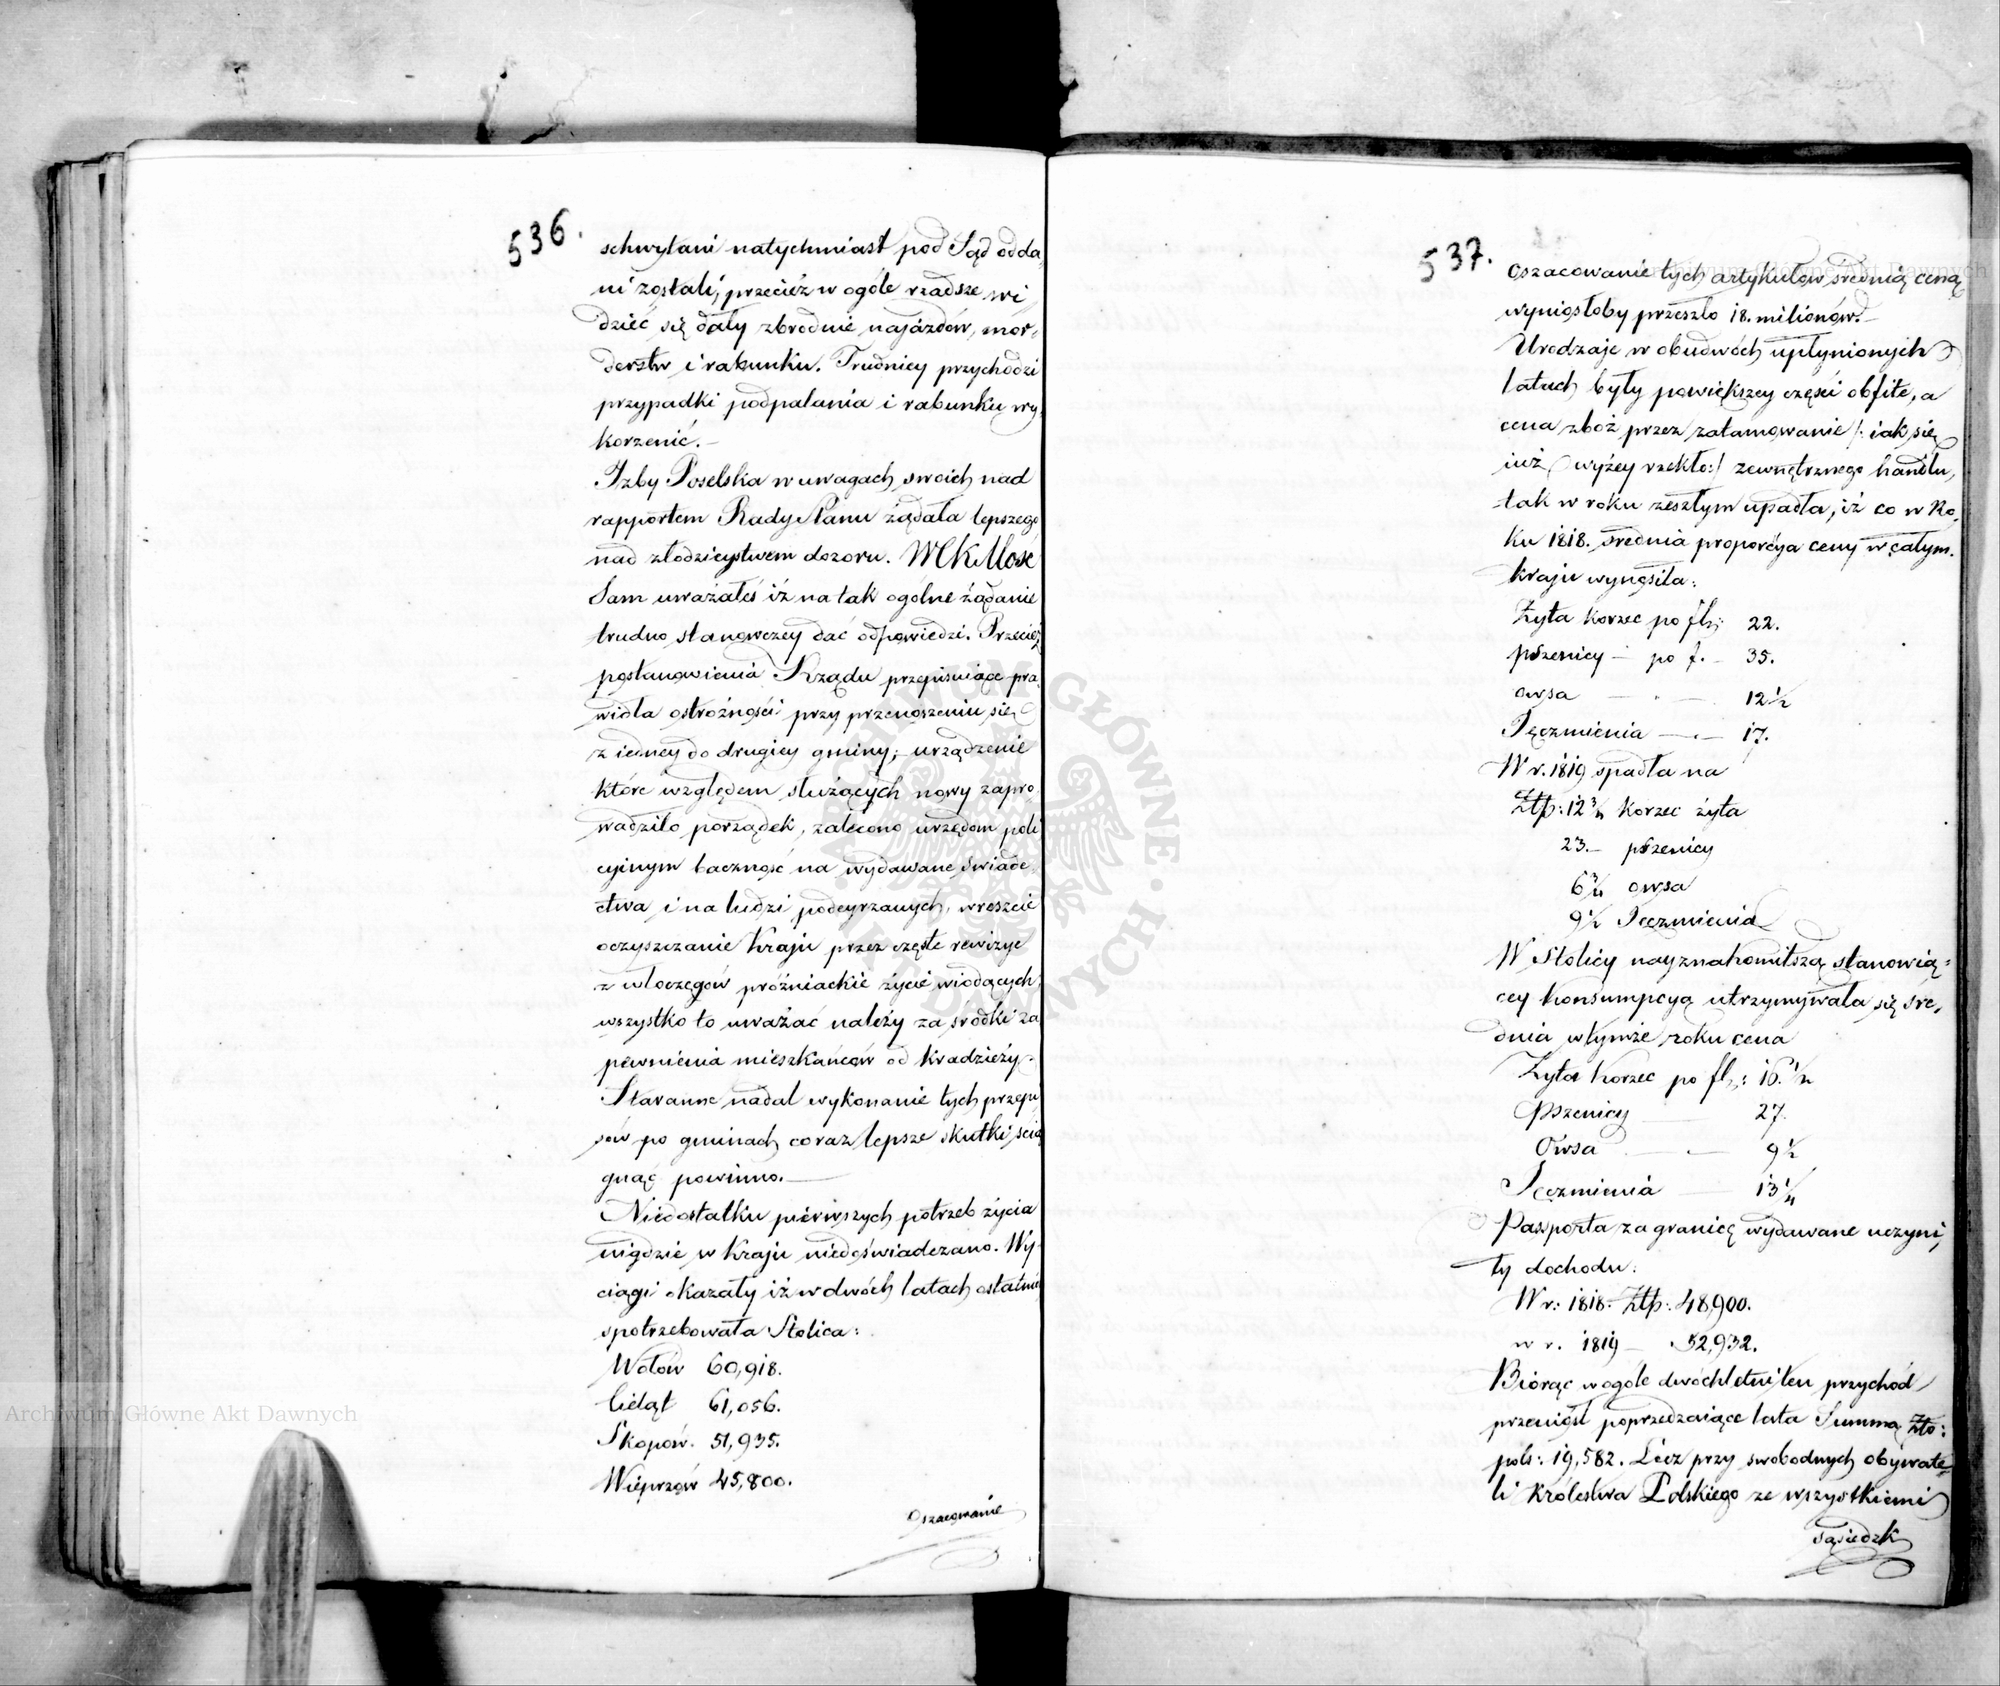 536.
schwytani natychmiast pod Sąd odda,
ni zostali, przecież w ogóle rzadsze wi
dzieć się dały zbrodnie najazdów, mor,
derstw i rabunku. Trudniey przychodzi
przypadki podpalania i rabunku wy,
korzenić.—
Izby Poselska w uwagach swoich nad
rapportem Rady Stanu żądała lepszego
nad złodzieystwem dozoru. WCKMość
Sam uważałeś iż na tak ogólne żądanie
trudno stanowczey dać odpowiedzi. Przecież
postanowienia Rządu przepisuiące pra,
widła ostrożności przy przenoszeniu się
z iedney do drugiey gminy; urządzenie
które względem służących nowy zapro,
wadziło porządek, zalecono urzędom poli
cyinym baczność na wydawane świade,
ctwa i na ludzi podeyrzanych, wreszcie
oczyszczanie Kraju przez częste rewizye
z włoczęgów próżniackie życie wiodących,
wszystko to uważać należy za środki za
pewnienia mieszkańców od kradzieży.—
Staranne nadal wykonanie tych przepi
sów po gminach coraz lepsze skutki ścią
gnąć powinno.—
Niedostatku pierwszych potrzeb życia
nigdzie w Kraju niedoświadczano. Wy-
ciągi okazały iż w dwóch latach ostatnich
spotrzebowała Stolica:
Wołów 60,918.
Cieląt 61,056.
Skopów. 51,935.
Wieprzów 45,800.
Oszacowanie
537.
oszacowanie tych artykułów średnią ceną
wyniosłoby przeszło 18. milionów.—
Urodzaje w obudwóch upłynionych
latach były powiększey części obfite, a
cena zbóż przez zatamowanie /: iak się
iuż wyżey rzekło:/ zewnętrznego handlu,
tak w roku zeszłym upadła, iż co w Ro,
ku 1818. średnia proporcya ceny w całym
kraju wynosiła:
Żyta korzec po fl: 22.
pszenicy — po f. — 35.
owsa — . — 12½
Jęczmienia — . — 17.
W r. 1819 spadła na
Złp: 12¾ korzec żyta
23.— pszenicy
6¾ owsa
9½ Jęczmienia
W Stolicy nayznakomitszą stanowią=
cey konsumpcyą utrzymywała się śre,
dnia w tymże roku cena
Żyta korzec po fl: 16.½
Pszenicy — 27.
Owsa — . — 9½
Jęczmienia — 13¼
Paszporta za granicę wydawane uczyni,
ły dochodu:
W r: 1818. Złp: 48,900.
w r. 1819 — 52,932.
Biorąc w ogóle dwóchletni ten przychód
przeniósł poprzedzaiące lata Summą Zło:
pols: 19,582. Lecz przy swobodnych obywate,
li Królestwa Polskiego ze wszystkiemi
sąsiedzk
Archiwum Główne Akt Dawnych
Archiwum Główne Akt Dawnych
ARCHIWUM GŁÓWNE AKT DAWNYCH